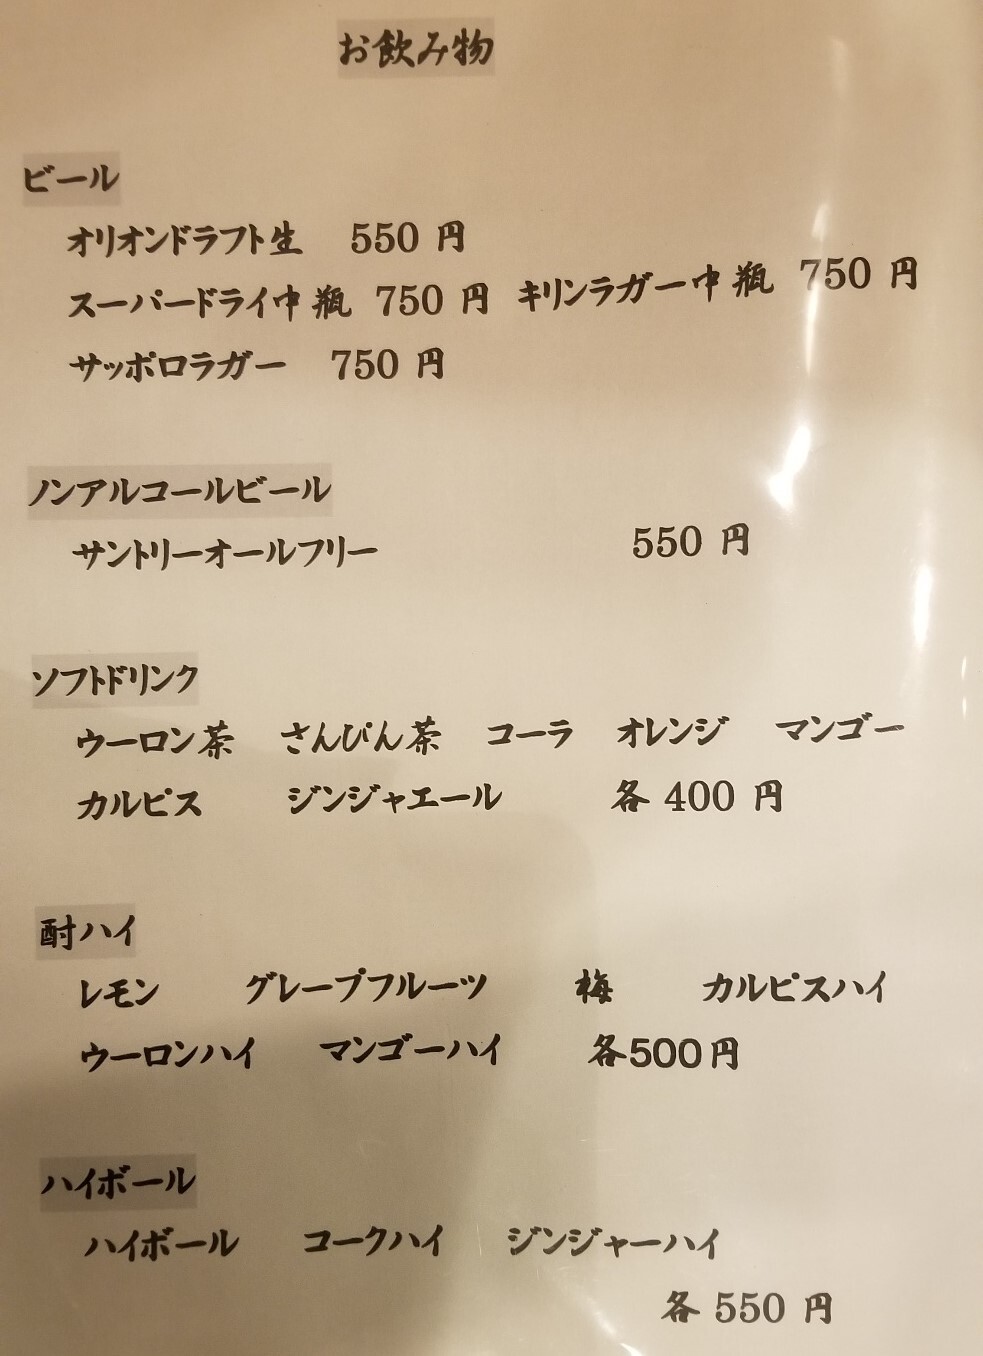 お飲み物
ビール
オリオンドラフト生 550 円
スーパードライ中瓶 750 円 キリンラガー中瓶 750 円
サッポロラガー 750 円
ノンアルコールビール
サントリーオールフリー 550 円
ソフトドリンク
ウーロン茶 さんぴん茶 コーラ オレンジ マンゴー
カルピス ジンジャエール 各 400 円
酎ハイ
レモン グレープフルーツ 梅 カルピスハイ
ウーロンハイ マンゴーハイ 各500円
ハイボール
ハイボール コークハイ ジンジャーハイ
各 550 円